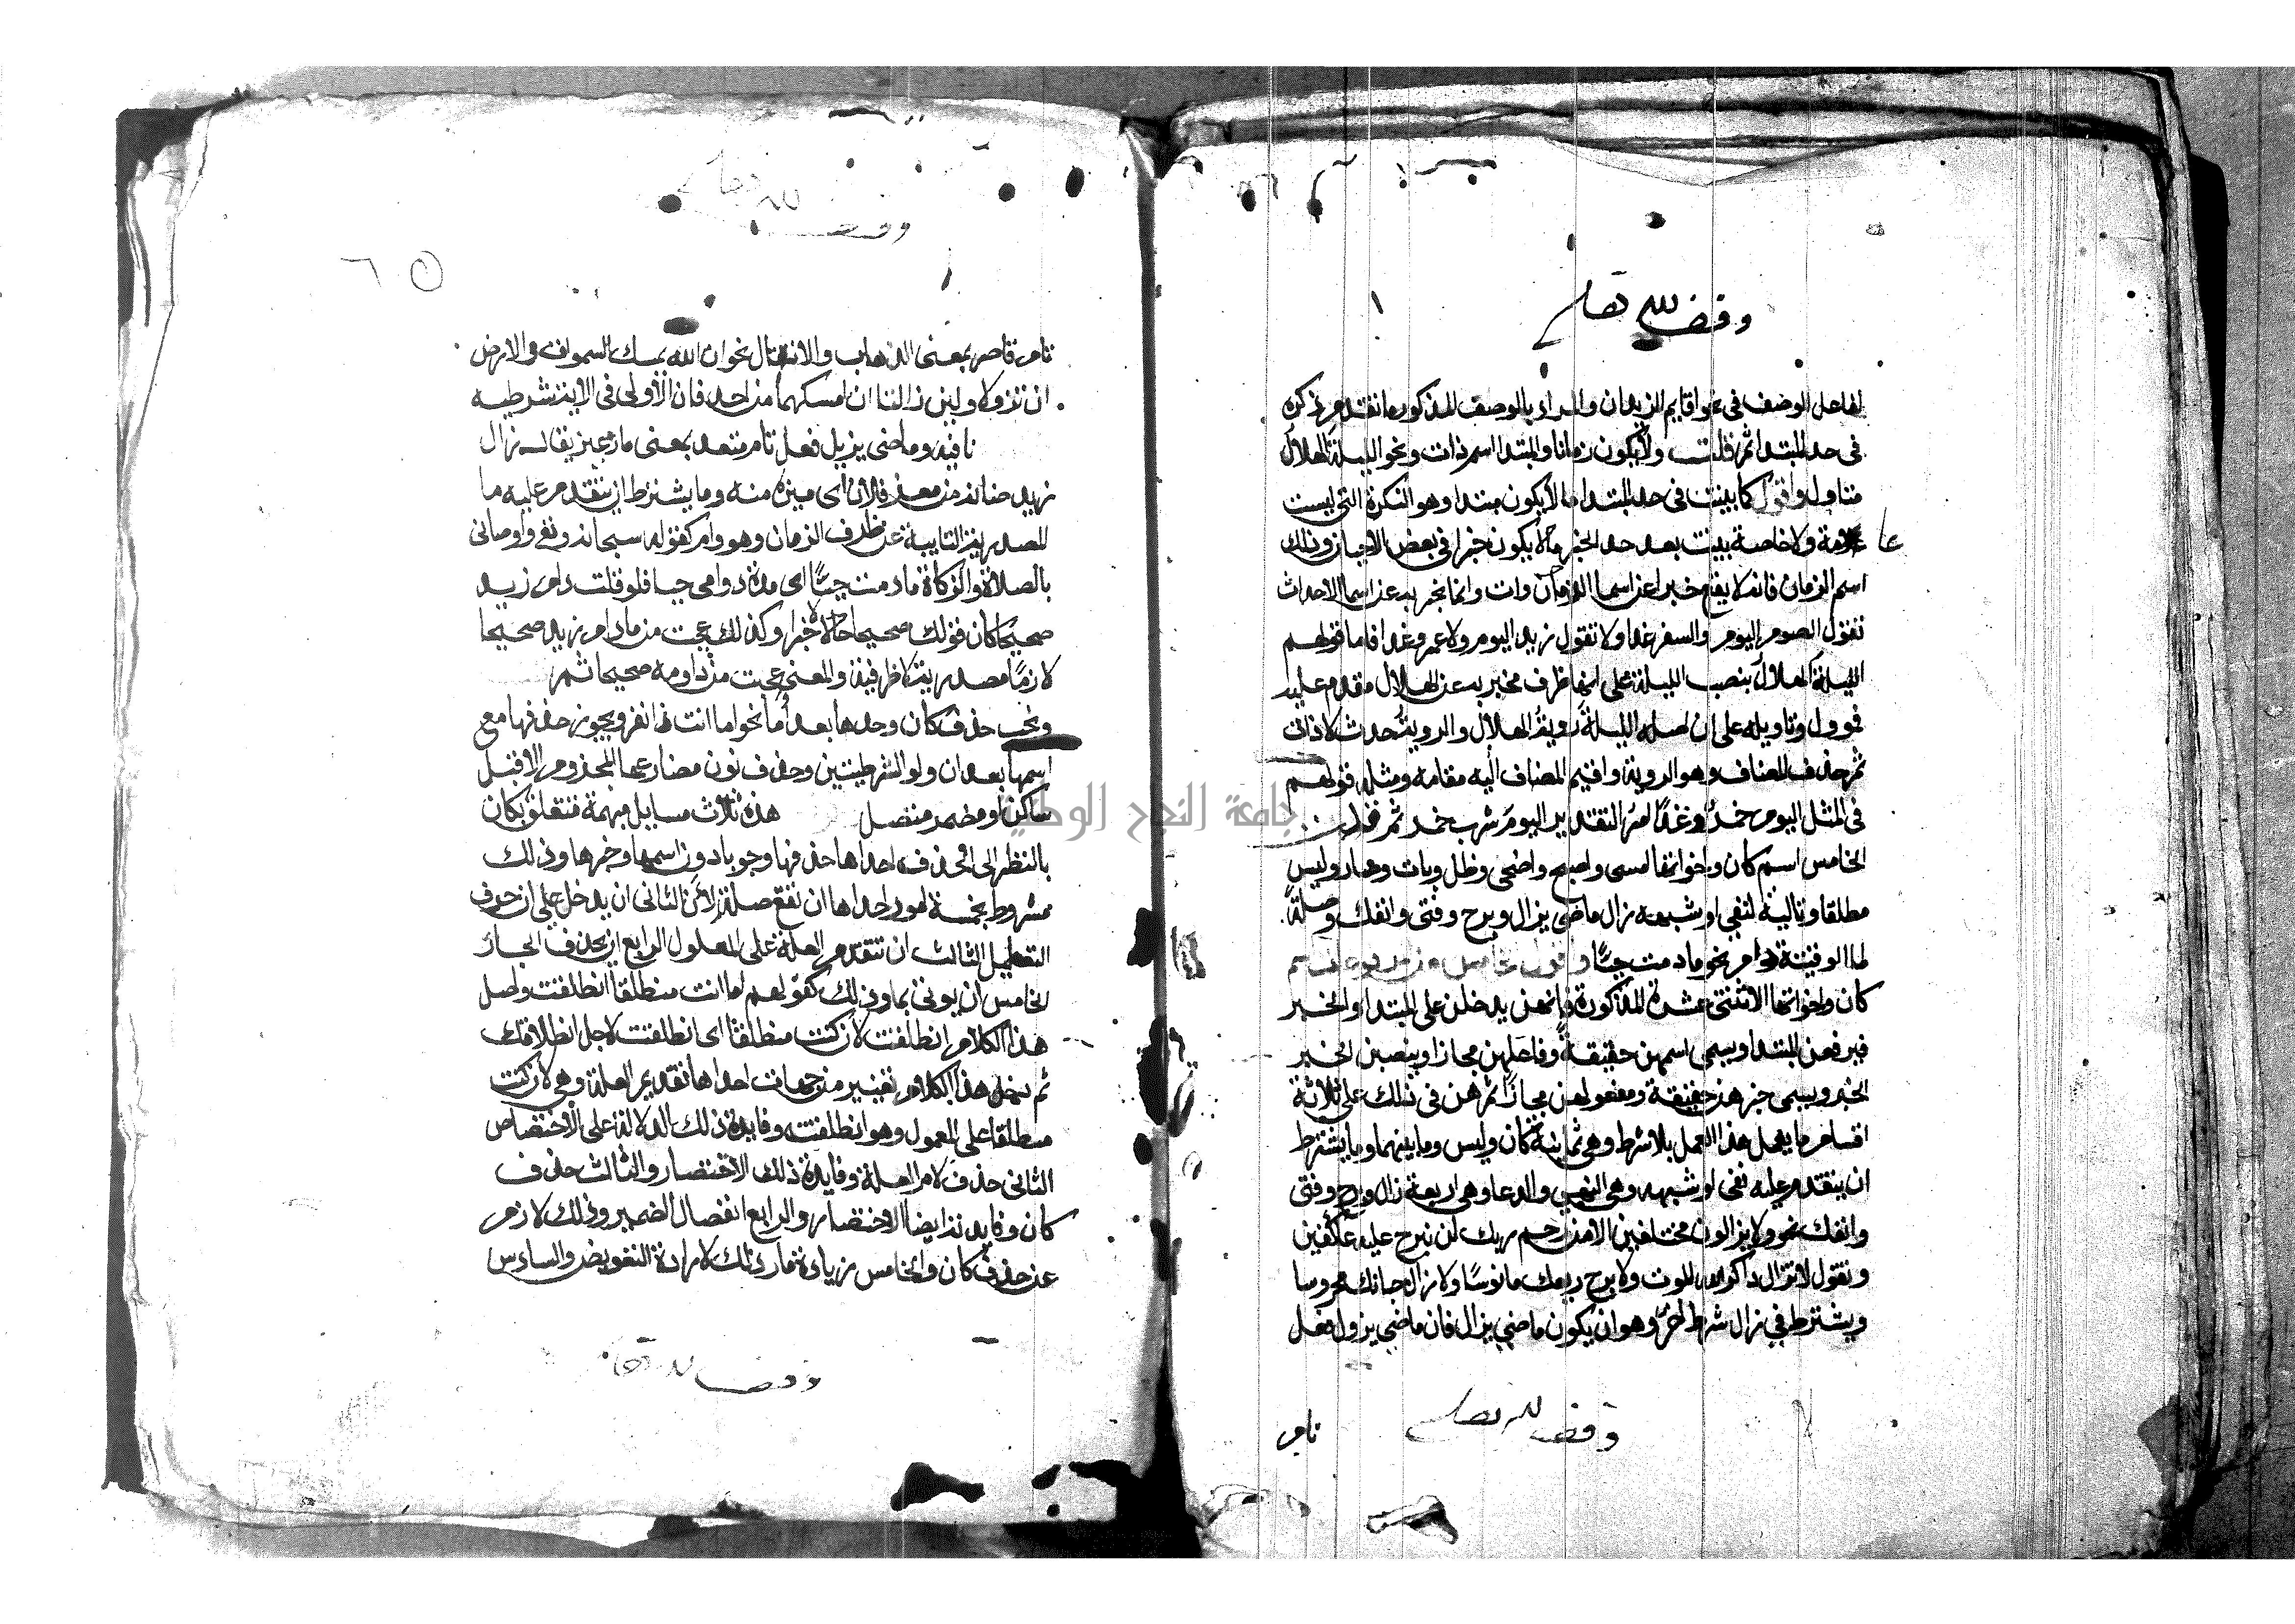 وقف لله تعالى
لفاعل الوصف في نحو اقايم الزيدان والمراد بالوصف المذكور ما تقدم ذكره
في حد المبتدا ثم قلت ولا يكون زمانا والمبتدا اسم ذات ونحو الليلة الهلال
متاول واقول كما بينت في حد المبتدا ما لا يكون مبتدا وهو النكرة التي ليست
عامة ولا خاصة بينت بعد حد الخبر ما لا يكون خبرا في بعض الاحيان وذلك
عا
اسم الزمان فانه لا يقع خبرا عن اسما الذوات وانما يخبر به عن اسما الاحداث
تقول الصوم اليوم والسفر غدا ولا تقول زيد اليوم ولا عمرو غدا فاما قولهم
الليلة الهلال بنصب الليلة على انها ظرف مخبر به عن الهلال مقدم عليه
فموول وتاويله على ان اصله الليلة رويةُ الهلال والرويةُ حدث لا ذات
ثم حذف المضاف وهو الروية واقيم المضاف اليه مقامه ومثله قولهم
في المثل اليوم خمرٌ وغدًا امر التقدير اليومَ شرب خمر ثم قلت
الخامس اسم كان واخواتها امسى واصبح واضحى وظل وبات وصار وليس
مطلقا وتالية لنفي او شبهه زال ماضي يزال وبرح وفتى وانفك وصلةً
لما الوقتية دام نحو ما دمت حيًّا واقول الخامس من المرفوعات اسم
كان واخواتها الاثنتي عشرة المذكورة فانهن يدخلن على المبتدا والخبر
فيرفعن المبتدا ويسمى اسمهن حقيقةً وفاعلهن مجازا وينصبن الخبر
الخبر ويسمى خبرهن حقيقة ومفعولهن مجازًا ثم هن في ذلك على ثلاثة
اقسام ما يعمل هذا العمل بلا شرط وهي ثمانية كان وليس وما بينهما وما يشترط
ان يتقدم عليه نفي او شبهه وهي النهي والدعا وهي اربعة زال وبرح وفتى
وانفك نحو ولا يزالون مختلفين الا من رحم ربك لن نبرح عليه عاكفين
وتقول لا تزال ذاكر الموت ولا برح ربعك مانوسًا ولا زال جنابك محروسا
ويشترط في زال شرط اخرُ وهو ان يكون ماضي يزال فان ماضي يزول فعل
وقف لله تعالى
تام
وقف لله تعالى
٦٥
تام قاصر بمعنى الذهاب والانتقال نحو ان الله يمسك السموات والارض
ان تزولا ولين زالتا ان امسكهما من احد فان الأولى في الاية شرطية
نافية وماضي يزيل فعل تام متعد بمعنى ماز يميز يقال زال
زيد ضانه من معز فلان اى ميزه منه وما يشترط ان يتقدم عليه ما
المصدرية النايبة عن ظرف الزمان وهو دام كقوله سبحانه وتع واوصانى
بالصلاة والزكاة ما دمت حيًّا اى مدة دوامى حيا فلو قلت دام زيد
صحيحًا كان قولك صحيحا حالا لا خبرا وكذلك عجبت من ما دام زيد صحيحا
لان ما مصدرية لا ظرفية والمعنى عجبت من دوامه صحيحا ثم
ويجب حذف كان وحدها بعد أما نحو اما انت ذا نفر ويجوز حذفها مع
اسمها بعد ان ولو الشرطيتين وحذف نون مضارعها المجزوم الا قبل
ساكن او مضمر متصل هذه ثلاث مسايل مهمة تتعلق بكان
بالنظر الى الحذف احداها حذفها وجوبا دون اسمها وخبرها وذلك
مشروط بخمسة امور احداها ان تقع صلة لان الثانى ان يدخل على ان حرف
التعليل الثالث ان تتقدم العلة على المعلول الرابع ان يحذف الجار
الخامس ان يوتى بما وذلك كقولهم اما انت منطلقا انطلقت واصل
هذا الكلام انطلقت لان كنت منطلقا اى انطلقت لاجل انطلاقك
ثم دخل هذا الكلام تغيير من جهات احداها تقديم العلة وهي لان كنت
منطلقا على المعمول وهو انطلقت وفايدة ذلك الدلالة على الاختصاص
الثانى حذف لام العلة وفايدة ذلك الاختصار والثالث حذف
كان وفايدته ايضا الاختصار والرابع انفصال الضمير وذلك لازم
عن حذف كان والخامس زيادة ما وذلك لارادة التعويض والسادس
وقف لله تعالى
جامعة النجاح الوطنية